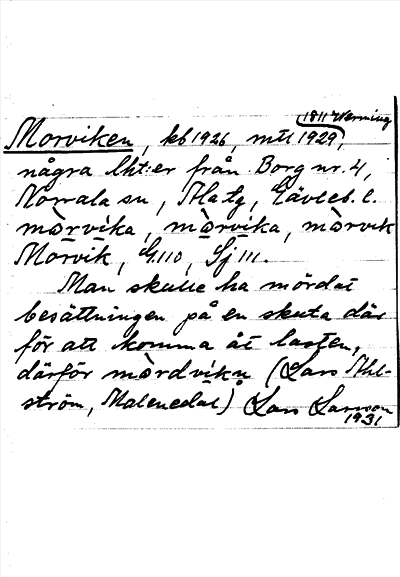 1811 Werning
Morviken, kb 1926, mtl 1929,
några lht:er från Borg nr. 4,
Norrala sn, Ala tg, Gävleb. l.
mòrvika, mòrvika, mòrvik
Morvik, G110, Sj 111.
Man skulle ha mördat
besättningen på en skuta där
för att komma åt lasten,
därför mòrdvikn (Lars Ahl-
ström, Malenedal) Lars Larsson
1931